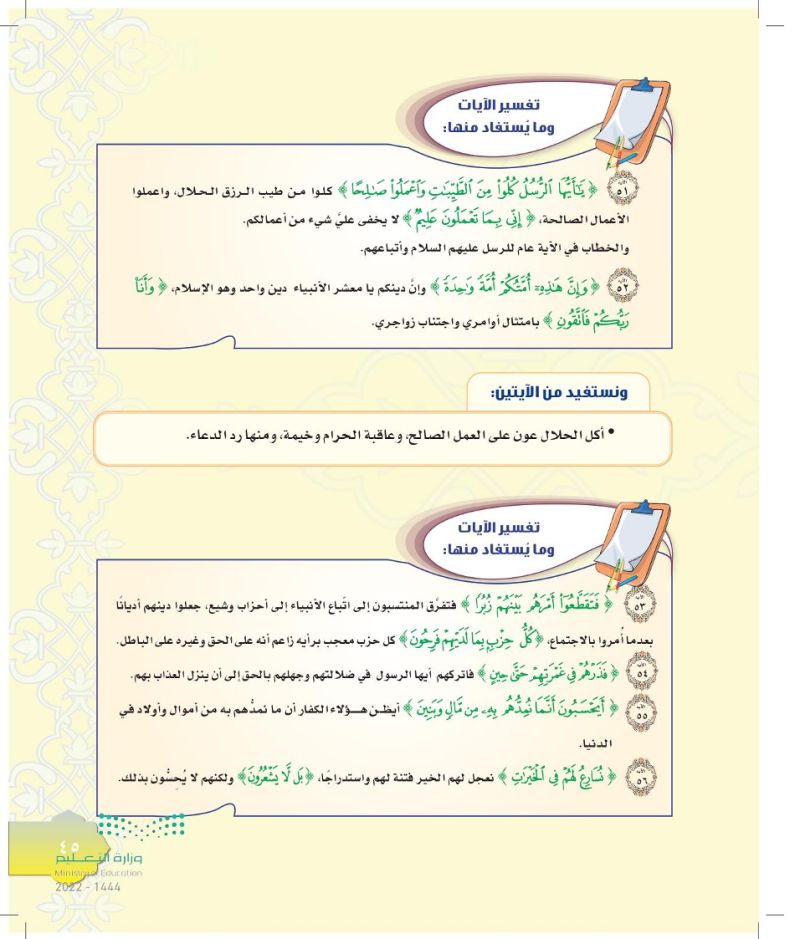 تفسير الآيات
وما يُستفاد منها:
٥١ ﴿ يَٰٓأَيُّهَا ٱلرُّسُلُ كُلُوا۟ مِنَ ٱلطَّيِّبَٰتِ وَٱعْمَلُوا۟ صَٰلِحًا ﴾ كلوا من طيب الرزق الحلال، واعملوا
الأعمال الصالحة، ﴿ إِنِّي بِمَا تَعْمَلُونَ عَلِيمٌ ﴾ لا يخفى عليَّ شيء من أعمالكم.
والخطاب في الآية عام للرسل عليهم السلام وأتباعهم.
٥٢ ﴿ وَإِنَّ هَٰذِهِۦٓ أُمَّتُكُمْ أُمَّةً وَٰحِدَةً ﴾ وإنَّ دينكم يا معشر الأنبياء دين واحد وهو الإسلام، ﴿ وَأَنَا۠
رَبُّكُمْ فَٱتَّقُونِ ﴾ بامتثال أوامري واجتناب زواجري.
ونستفيد من الآيتين:
• أكل الحلال عون على العمل الصالح، وعاقبة الحرام وخيمة، ومنها رد الدعاء.
تفسير الآيات
وما يُستفاد منها:
٥٣ ﴿ فَتَقَطَّعُوٓا۟ أَمْرَهُم بَيْنَهُمْ زُبُرًا ﴾ فتفرَّق المنتسبون إلى اتِّباع الأنبياء إلى أحزاب وشيع، جعلوا دينهم أديانًا
بعدما أُمروا بالاجتماع، ﴿كُلُّ حِزْبٍۭ بِمَا لَدَيْهِمْ فَرِحُونَ﴾ كل حزب معجب برأيه زاعم أنه على الحق وغيره على الباطل.
٥٤ ﴿ فَذَرْهُمْ فِي غَمْرَتِهِمْ حَتَّىٰ حِينٍ ﴾ فاتركهم أيها الرسول في ضلالتهم وجهلهم بالحق إلى أن ينزل العذاب بهم.
٥٥ ﴿ أَيَحْسَبُونَ أَنَّمَا نُمِدُّهُم بِهِۦ مِن مَّالٍ وَبَنِينَ ﴾ أيظن هؤلاء الكفار أن ما نمدُّهم به من أموال وأولاد في
الدنيا.
٥٦ ﴿ نُسَارِعُ لَهُمْ فِي ٱلْخَيْرَٰتِ ﴾ نعجل لهم الخير فتنة لهم واستدراجًا، ﴿بَل لَّا يَشْعُرُونَ﴾ ولكنهم لا يُحِسُّون بذلك.
٤٥
وزارة التعليم
Ministry of Education
2022 - 1444